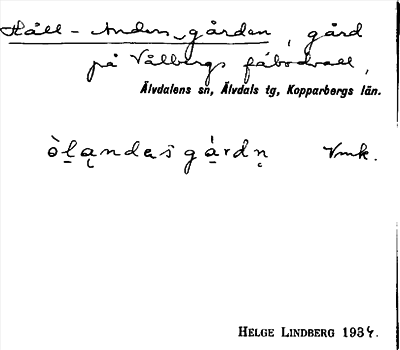 Håll-Anders-gården, gård
på Vålbergs fäbodvall,
Älvdalens sn, Älvdals tg, Kopparbergs län.
òḻąndas gá̱rdṇ Vmk.
HELGE LINDBERG 1934.